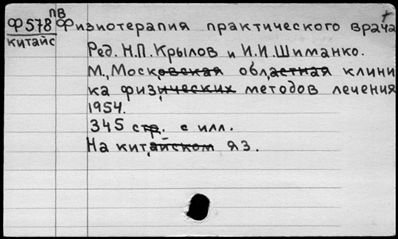 ПВ
Ф578 Физиотерапия практического врача
китайс
Ред. Н.П. Крылов и И.И. Шиманко.
М., Московская областная клини
ка физических методов лечения
1954.
345 стр. с илл.
На китайском яз.